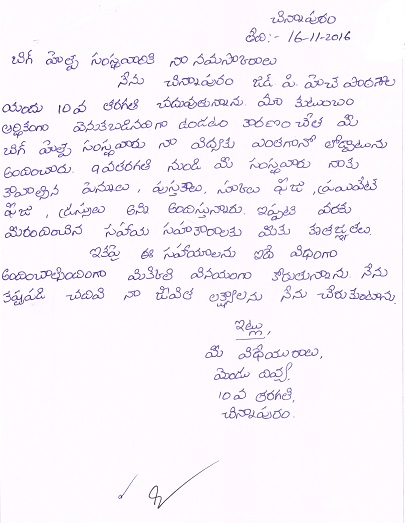 చినాపురం
తేది:- 16-11-2016
బిగ్ హెల్ప్ సంస్థవారికి నా నమస్కారాలు
నేను చినాపురం జడ్.పి.హెచ్ పాఠశాల
యందు 10వ తరగతి చదువుతున్నాను. మా కుటుంబం
ఆర్థికంగా వెనుకబడినదిగా ఉండటం కారణం చేత మీ
బిగ్ హెల్ప్ సంస్థవారు నా విద్యకు ఎంతగానో తోడ్పాటును
అందించారు. 8వతరగతి నుండి మీ సంస్థవారు నాకు
కావాల్సిన పెన్నులు, పుస్తకాలు, స్కూలు ఫీజు, ప్రయివేట్
ఫీజు, డ్రస్సులు అన్ని అందిస్తున్నారు. ఇప్పటి వరకు
మీరందించిన సహాయ సహకారాలకు మీకు కృతజ్ఞతలు.
ఇకపై ఈ సహాయాలను ఇదే విధంగా
అందించాల్సిందిగా మిమ్మల్ని వినయంగా కోరుతున్నాను. నేను
తప్పకుండా చదివి నా జీవిత లక్ష్యాలను నేను చేరుకుంటాను.
ఇట్లు,
మీ విధేయురాలు,
మెండు దివ్య,
10వ తరగతి,
చినాపురం.